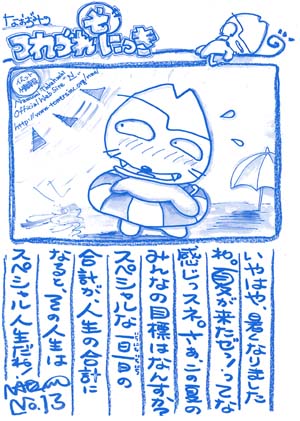 つれづれにっき
Official Web Site
いやはや、暑くなりました
ね。夏が来たぜッ！ってな
感じっスネ。さぁ、この夏の
みんなの目標はなんすか？
スペシャルな一日一日の
合計が人生の合計に
なると、その人生は
スペシャル人生だね！
No.13